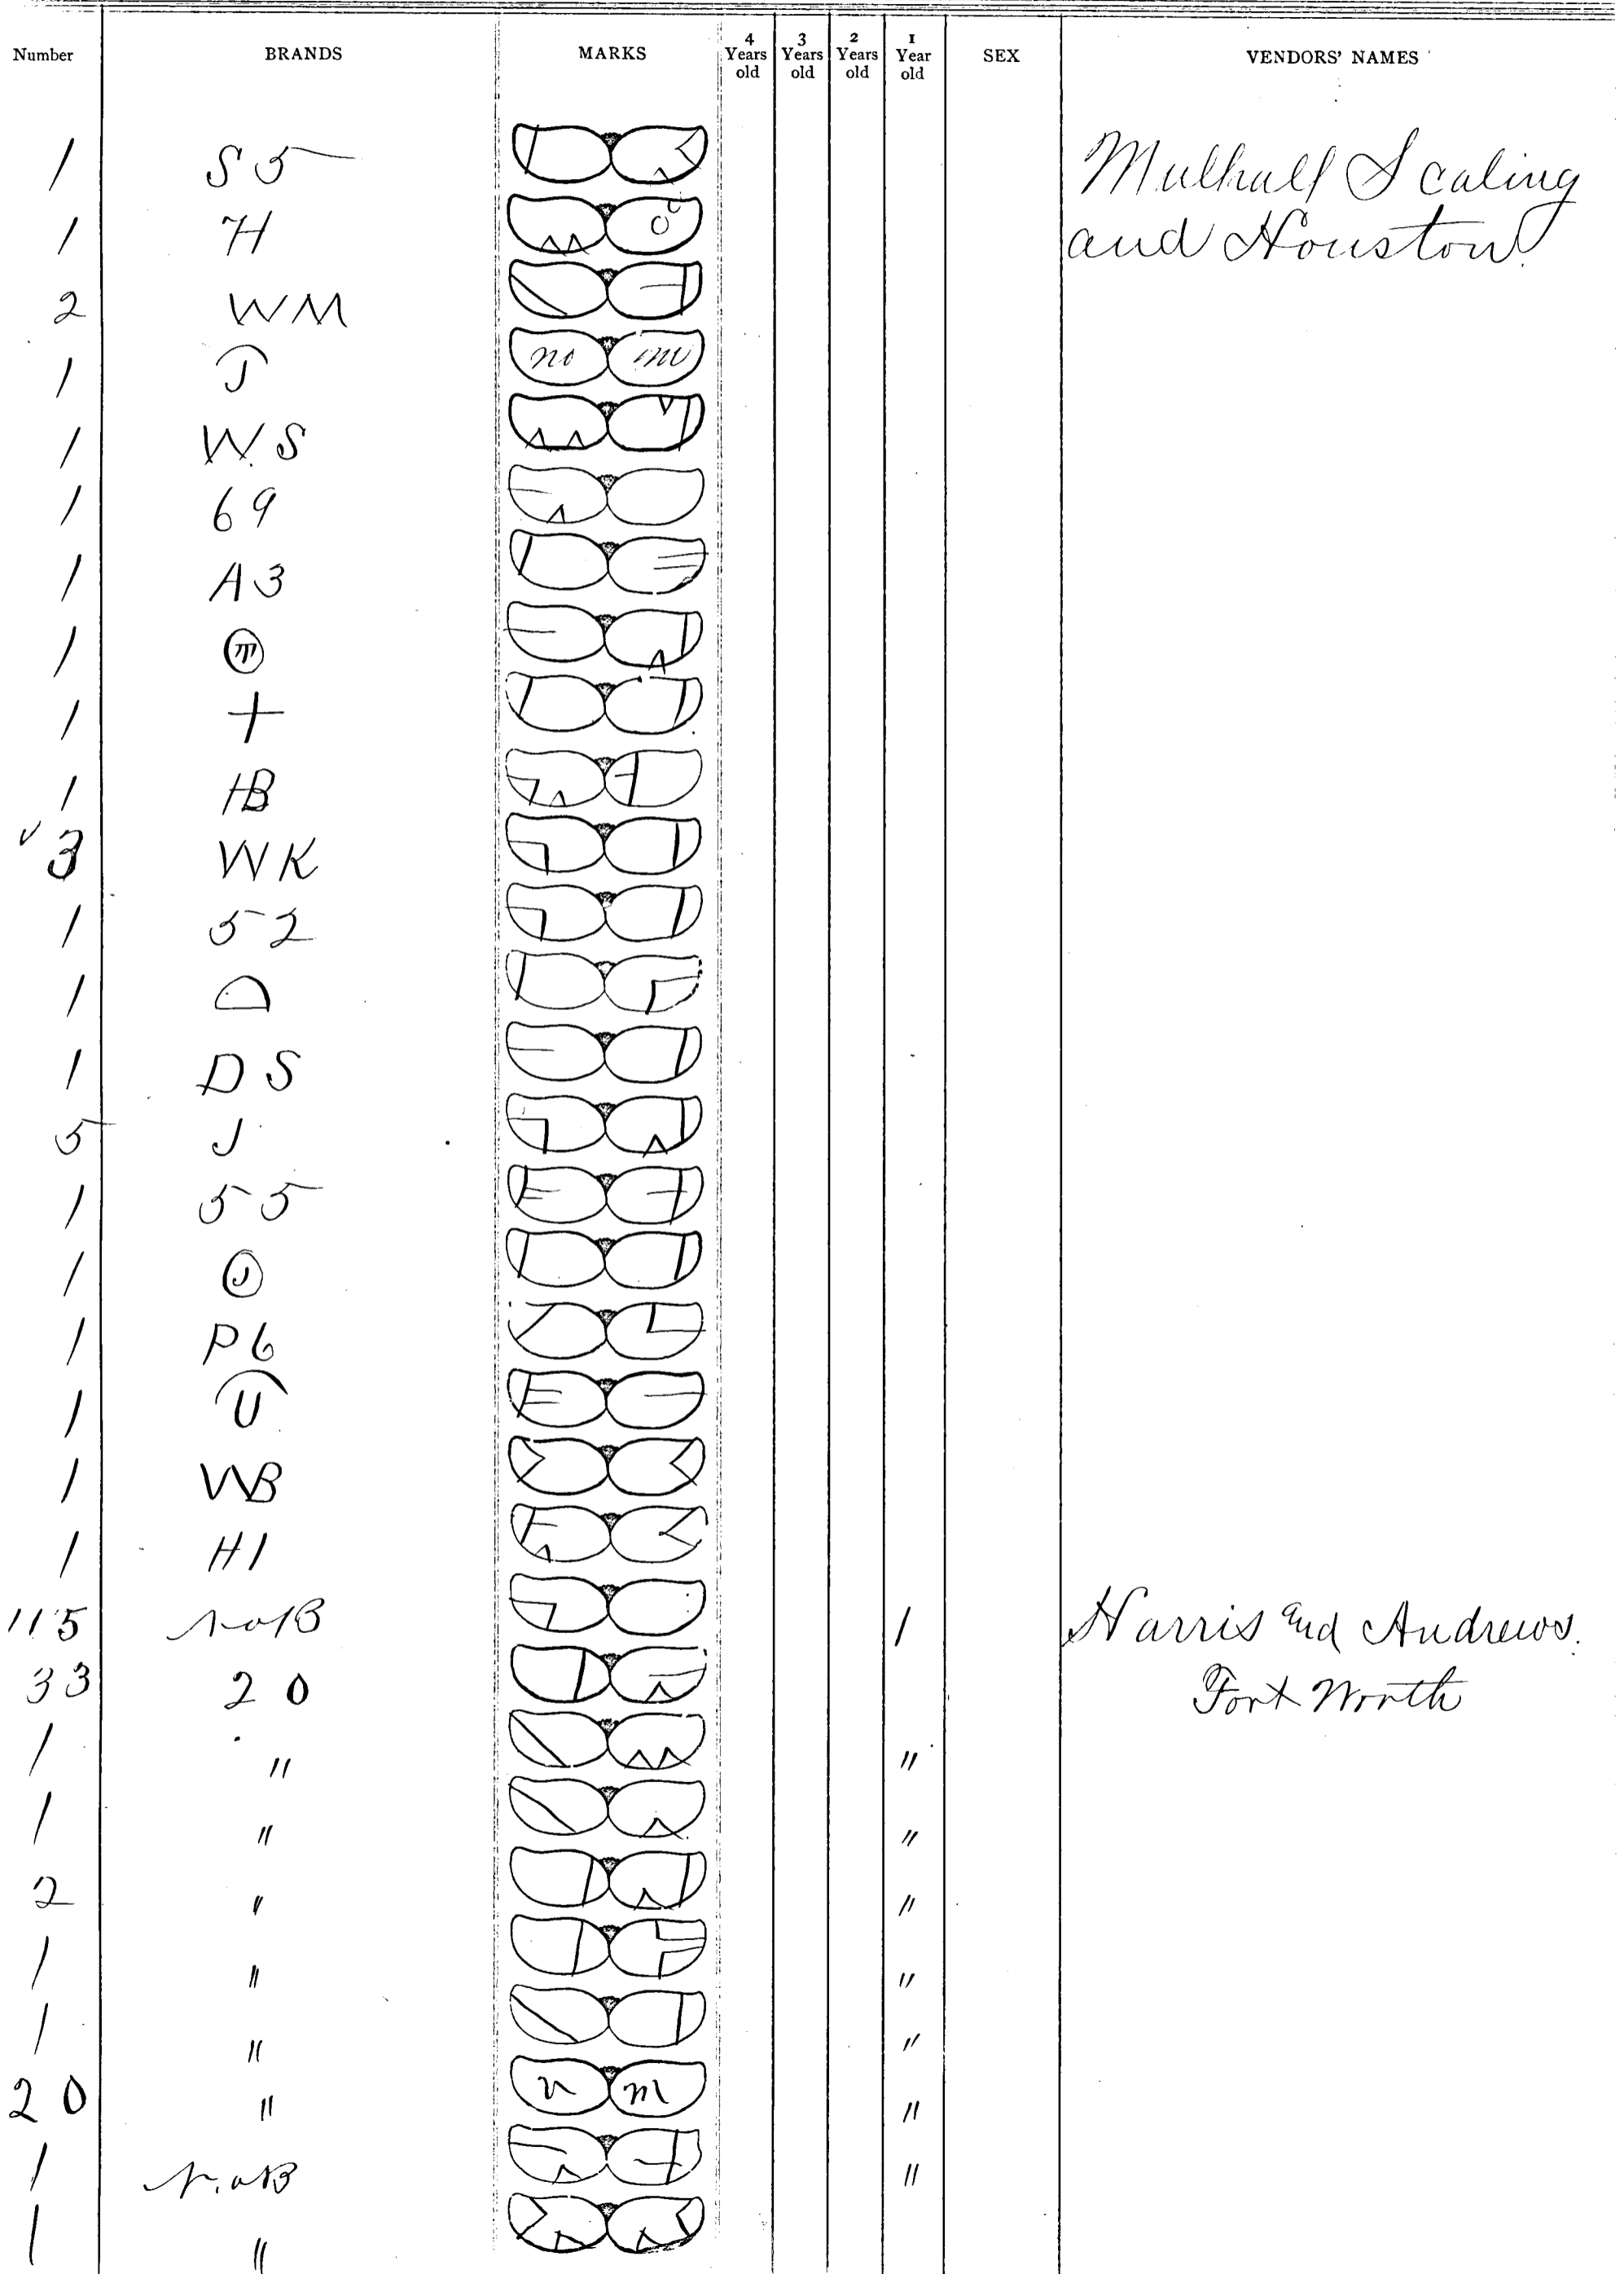 Number BRANDS MARKS 4 Years old 3 Years old 2 Years old 1 Year old SEX VENDORS' NAMES
1 S 5 Mulhall Scaling
1 H and Houston
2 WM
1 J no m
1 W.S
1 69
1 A3
1 m
1 +
1 HB
3 WK
1 52
1
1 D S
5 J
1 55
1 J
1 P6
1 U
1 WB
1 H1
115 No B 1 Harris and Andrews.
33 20 Fort Worth
1 " "
1 " "
2 " "
1 " "
1 " "
20 " n m "
1 No B "
1 "